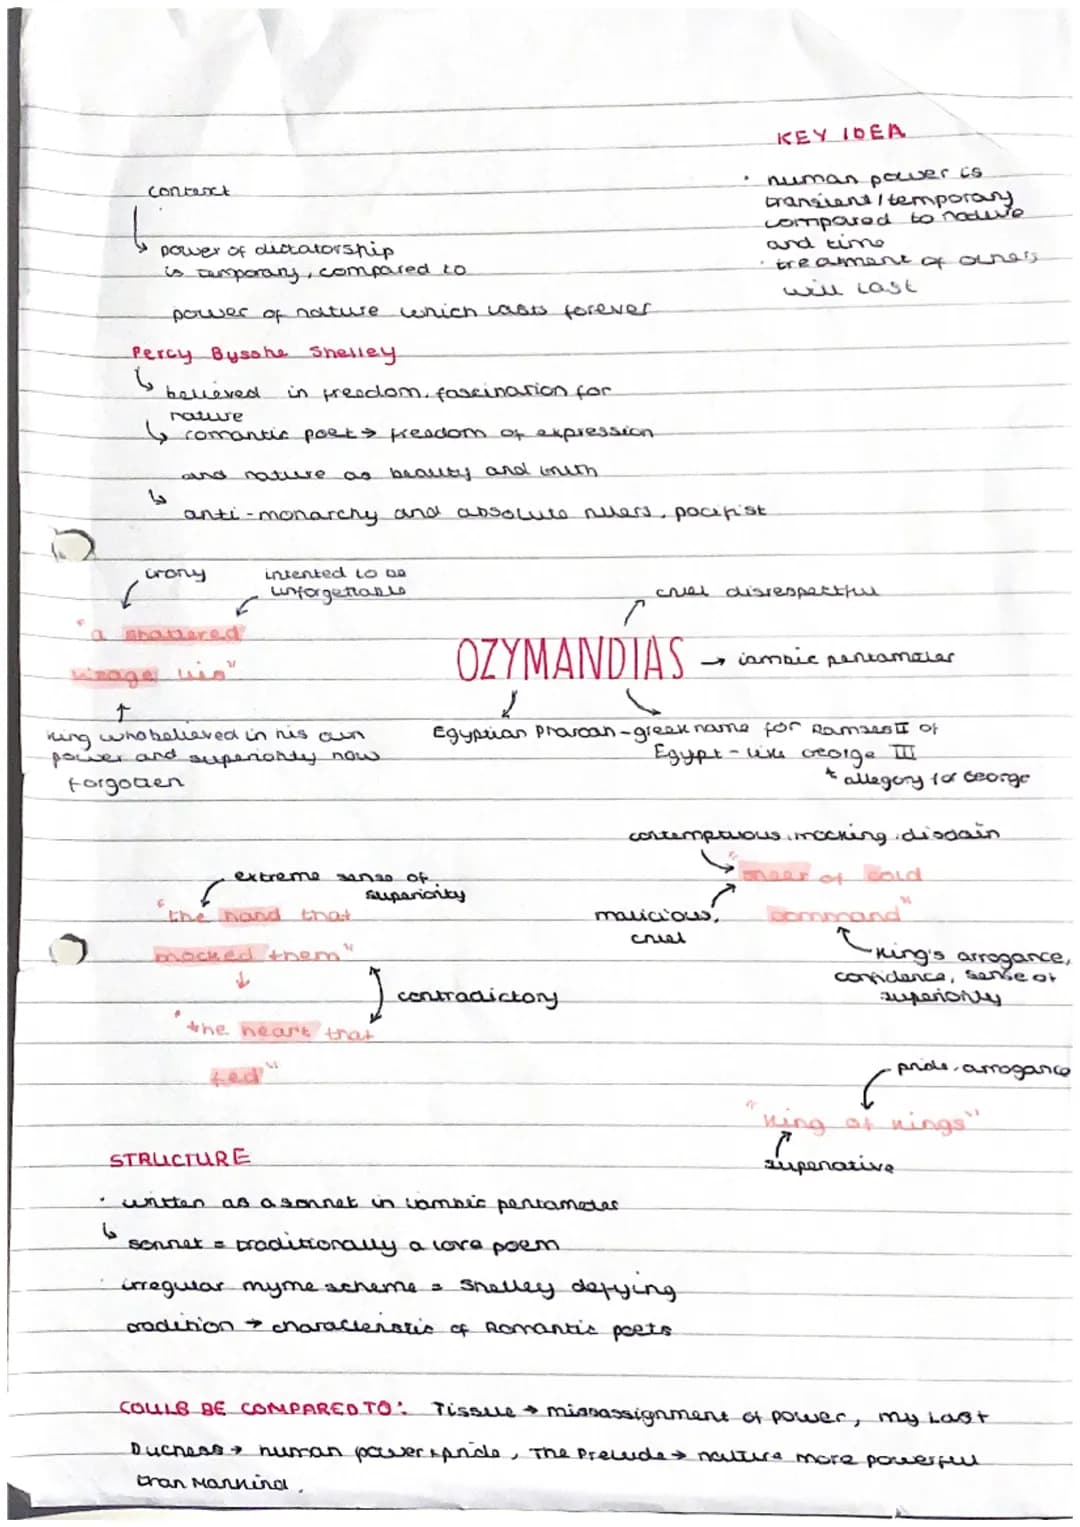 KEY IDEA
· human power is
transient/temporary
compared to nature
and time
· treatment of others
will last
context
↳ power of dictatorship
is temporary, compared to
power of nature which lasts forever
Percy Bysshe Shelley
↳ believed in freedom, fascination for
nature
↳ romantic poet → freedom of expression
and nature as beauty and truth
↳ anti-monarchy and absolute rulers, pacifist
irony
intented to be
unforgettable
"a shattered
visage lies"
king who believed in his own
power and superiority now
forgotten
cruel disrespectful
OZYMANDIAS → iambic pentameter
Egyptian Pharoah - greek name for Ramses II of
Egypt - like George III
* allegory for George
extreme sense of
superiority
"the hand that
mocked them"
↓
"the heart that
fed"
contradictory
contemptuous, mocking, disdain
"sneer of cold
command"
malicious,
cruel
king's arrogance,
confidence, sense of
superiority
pride, arrogance
"king of kings"
superlative
STRUCTURE
· written as a sonnet in iambic pentameter
↳ sonnet = traditionally a love poem
· irregular rhyme scheme = Shelley defying
tradition → characteristic of Romantic poets
COULD BE COMPARED TO: Tissue → missassignment of power, my Last
Duchess → human power + pride, The Prelude → nature more powerful
than Mankind.